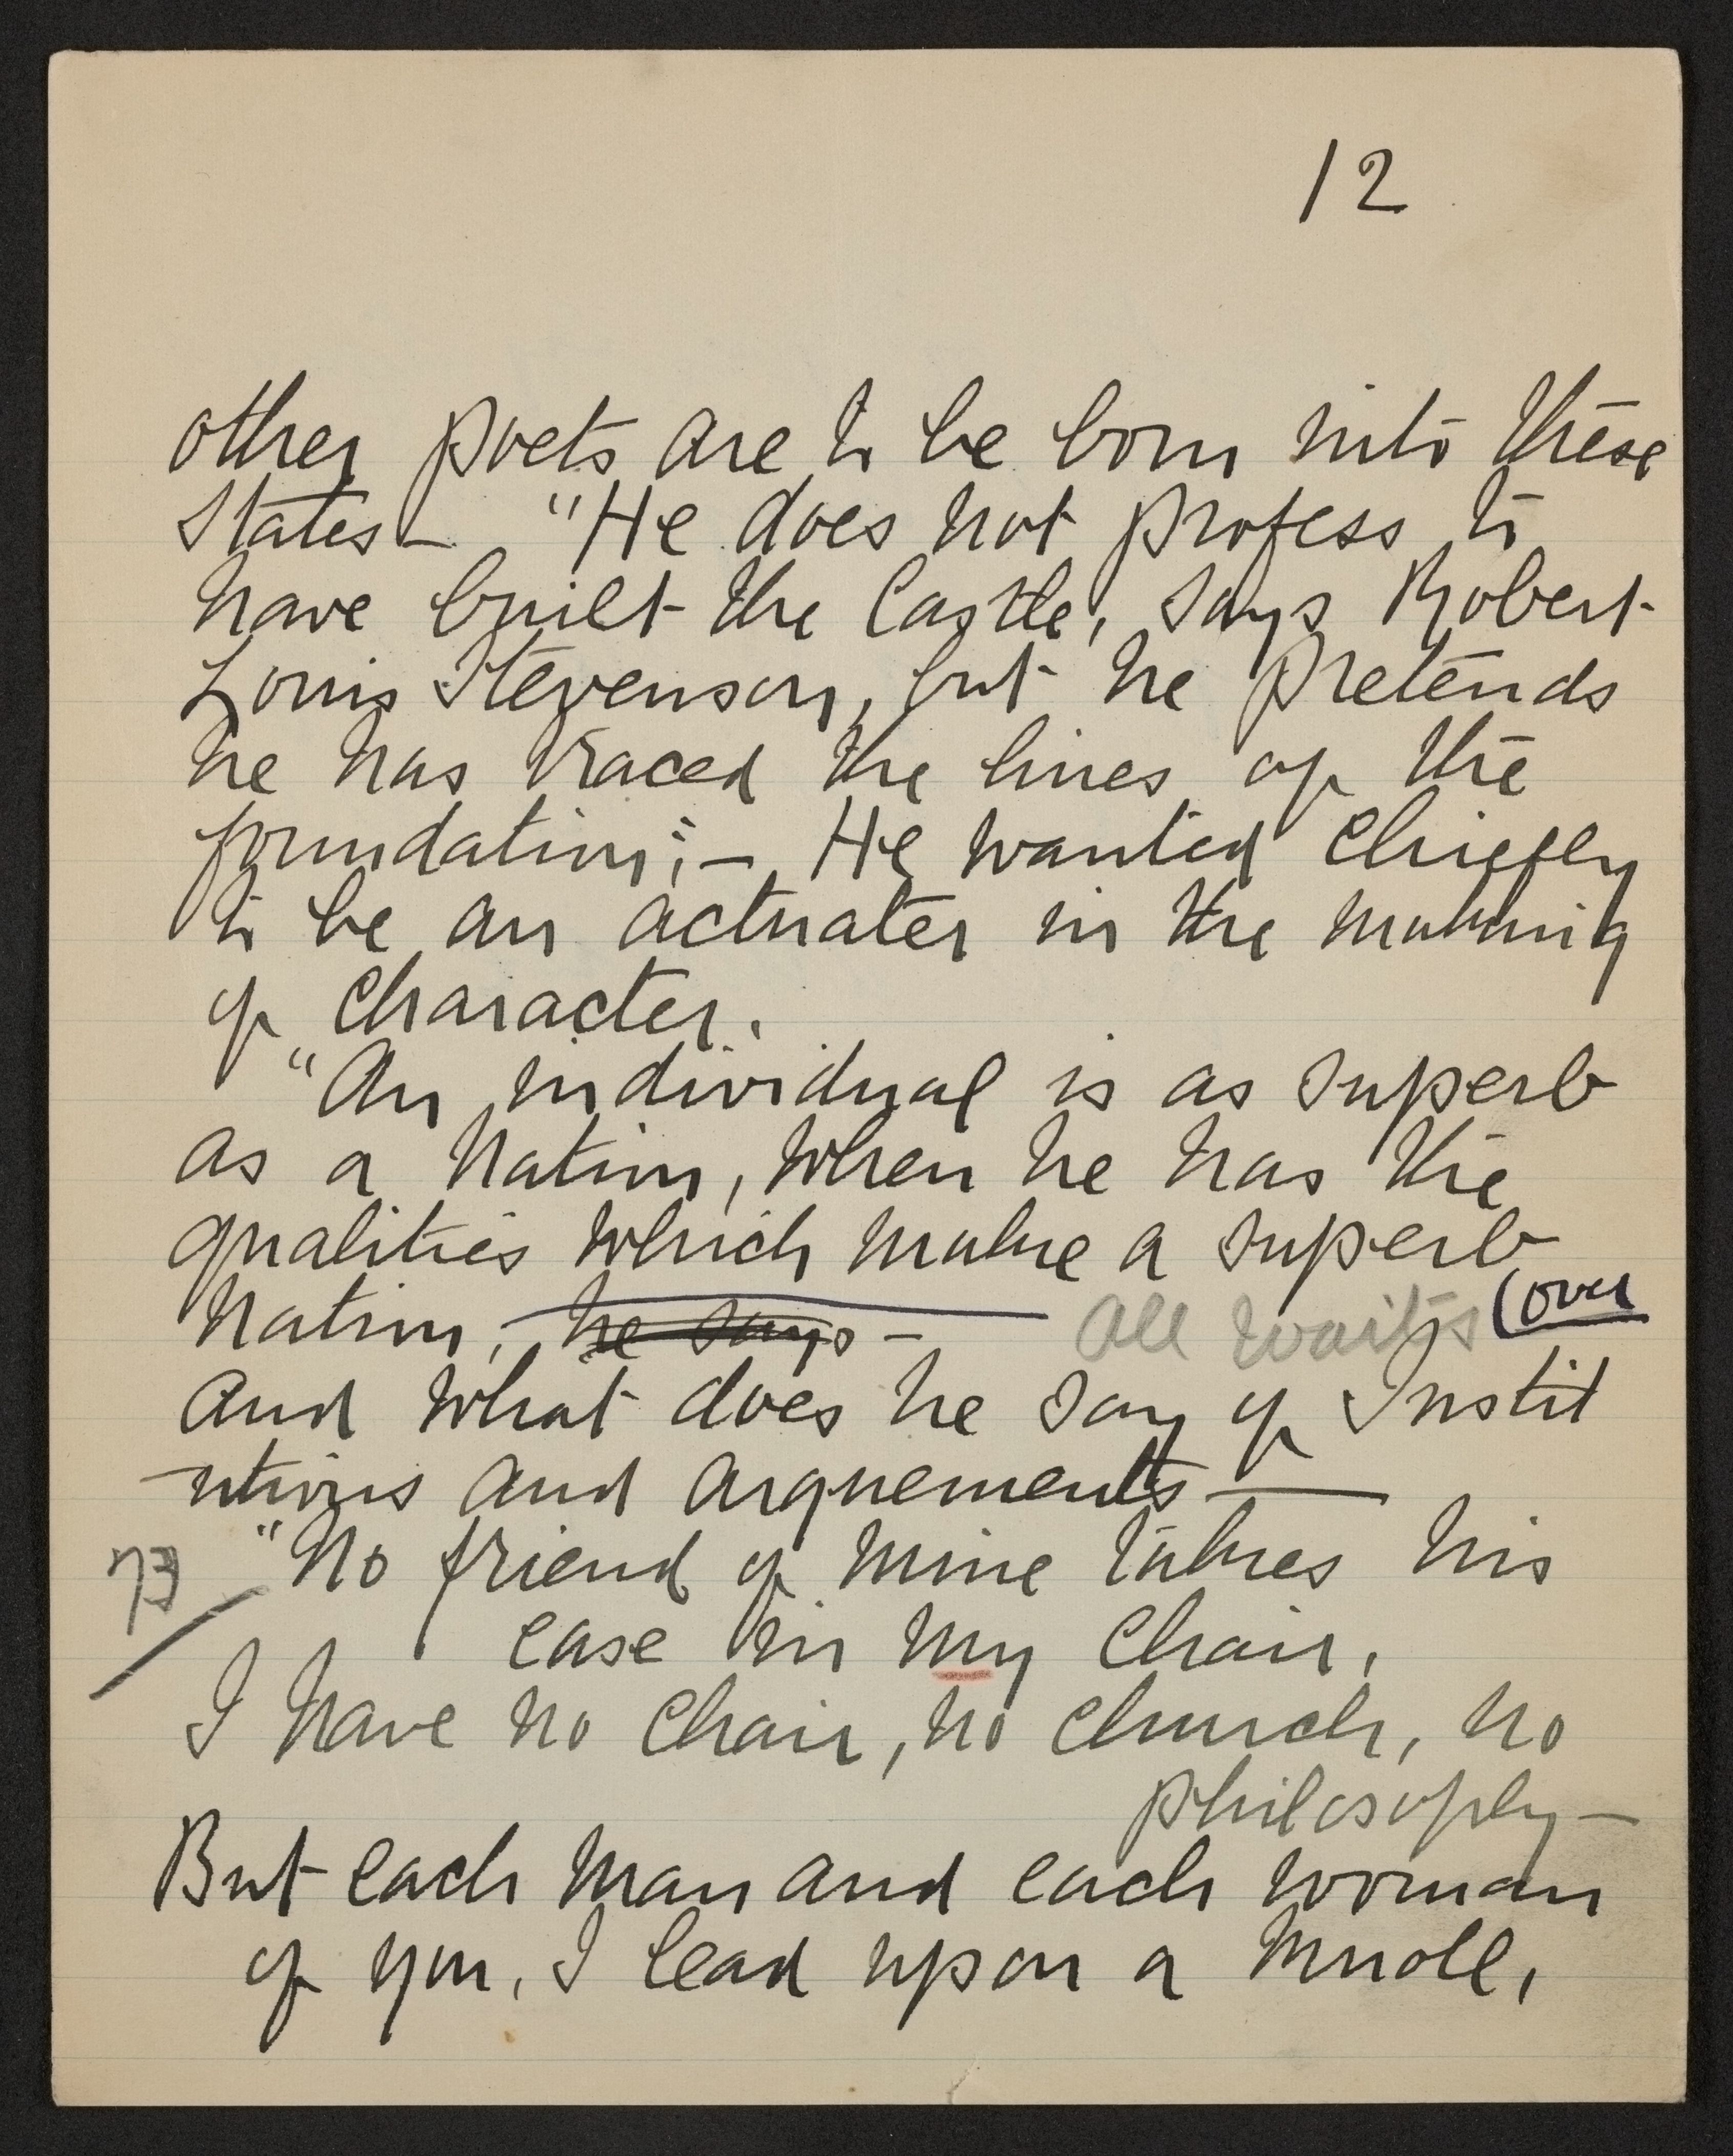 12
other poets are to be born into these
States – "He does not profess to
have built the Castle, says Robert
Louis Stevenson, but he pretends
he has traced the lines of the
foundation; – He wanted chiefly
to be an actuater in the making
of character.
"An individual is as superb
as a Nation, when he has the
qualities which make a superb
Nation, – he says – All waits (over
And what does he say of Instit
-utions and arguements —
73 "No friend of mine takes his
ease in my chair,
I have no chair, no church, no
philosophy –
But each man and each woman
of you, I lead upon a knoll,